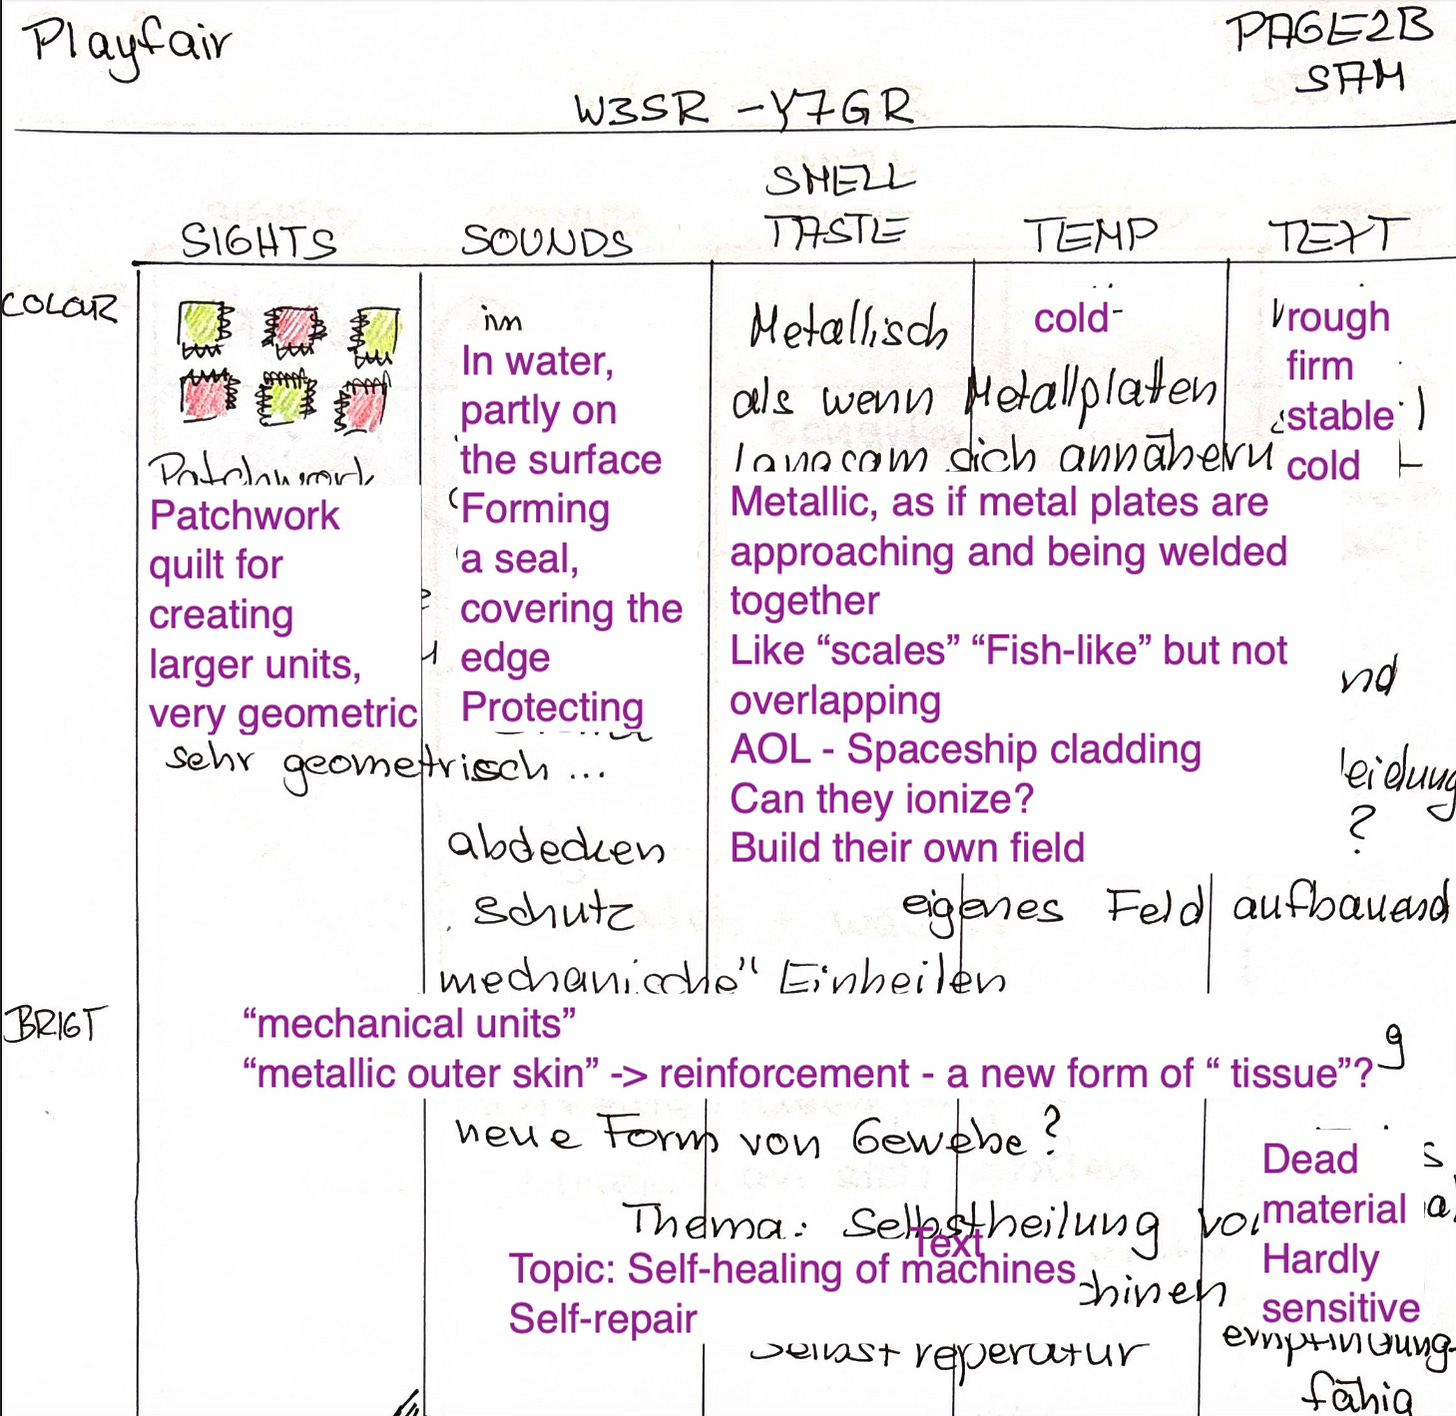 Playfair
PAGE2B
SAM
W3SR -Y7GR
SIGHTS
SOUNDS
SMELL
TASTE
TEMP
TEXT
COLOUR
Patchwork
Patchwork
quilt for
creating
larger units,
very geometric
sehr geometrisch ...
im
In water,
partly on
the surface
Forming
a seal,
covering the
edge
Protecting
abdecken
schutz
Metallisch
cold
als wenn Metallplatten
langsam sich annähern
rough
firm
stable
cold
Metallic, as if metal plates are
approaching and being welded
together
Like “scales” “Fish-like” but not
overlapping
AOL - Spaceship cladding
Can they ionize?
Build their own field
nd
leidung
?
eigenes Feld aufbauend
mechanische" Einheiten
BRIGT
“mechanical units”
“metallic outer skin” -> reinforcement - a new form of “ tissue”?
g
neue Form von Gewebe?
Thema: Selbstheilung von
Text
Topic: Self-healing of machines
chinen
Self-repair
Selbst reperatur
Dead
material
Hardly
sensitive
empfindung-
fähig